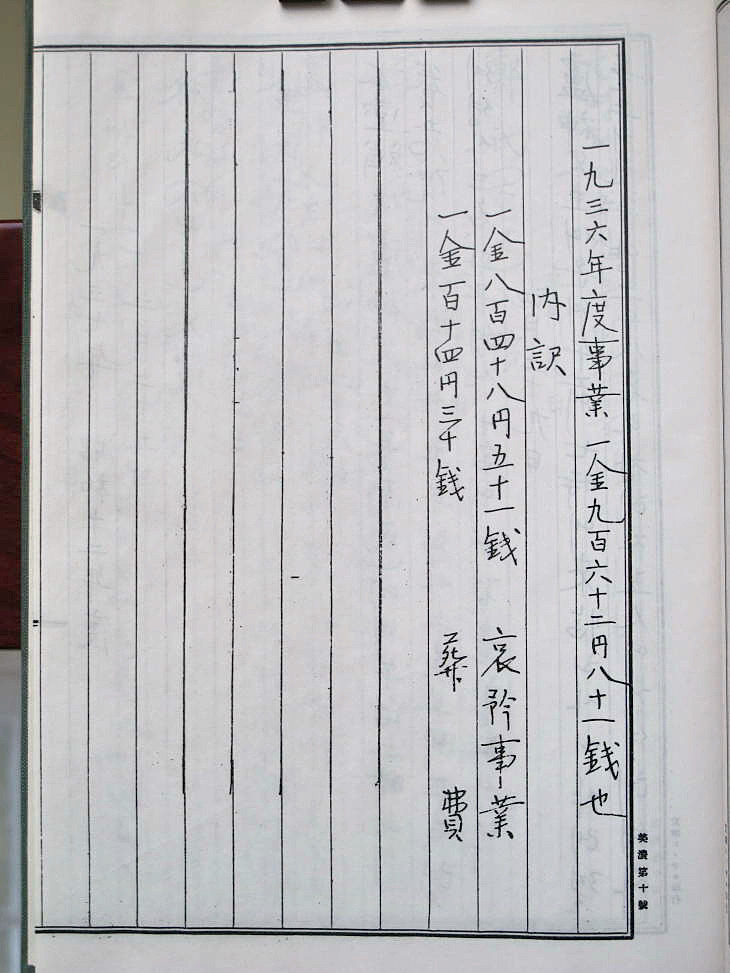 一九三六年度事業 一金九百六十二円八十一銭也
内訳
一金八百四十八円五十一銭 哀矜事業
一金百十四円三十銭 葬費
美濃第十號